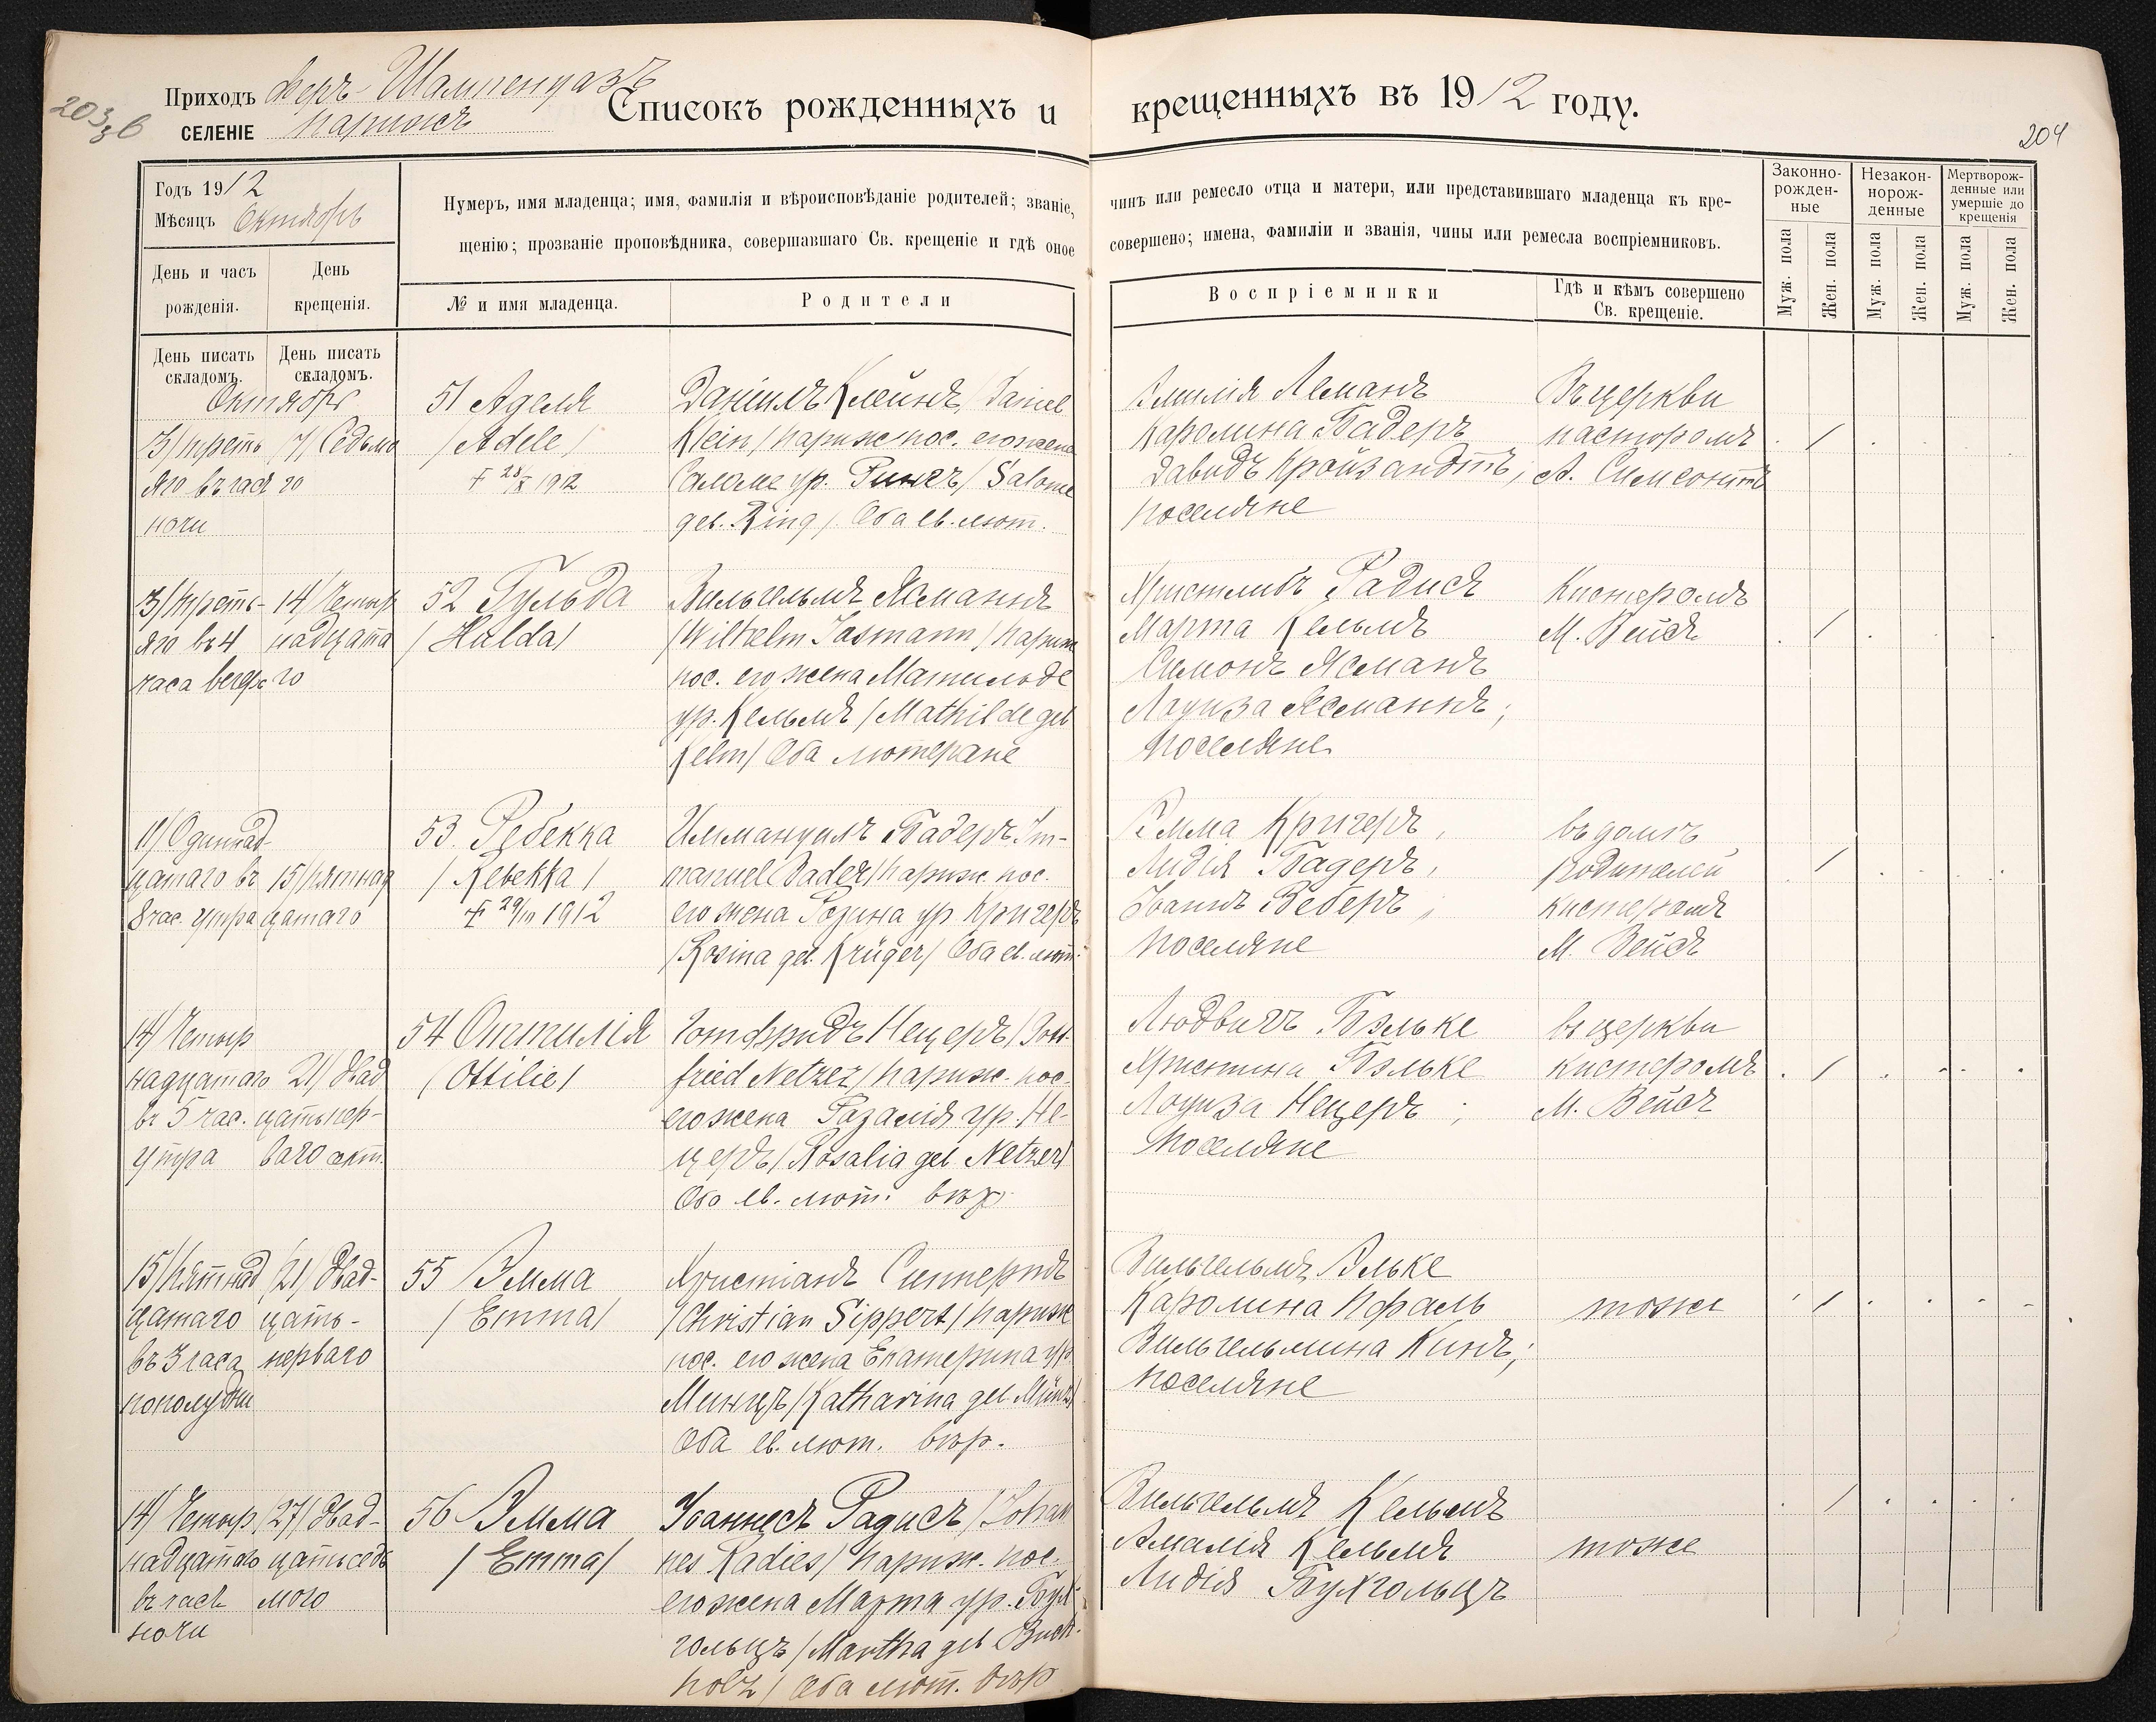 203 зб
Приходъ Феръ-Шампенуазъ
СЕЛЕНІЕ Парижъ
Списокъ рожденныхъ и крещенныхъ въ 1912 году.
204
Годъ 1912
Мѣсяцъ Октябрь
День и часъ рожденія.
День крещенія.
Нумеръ, имя младенца; имя, фамилія и вѣроисповѣданіе родителей; званіе, чинъ или ремесло отца и матери, или представившаго младенца къ кре-
щенію; прозваніе проповѣдника, совершавшаго Св. крещеніе и гдѣ оное совершено; имена, фамиліи и званія, чины или ремесла воспріемниковъ.
№ и имя младенца.
Родители
Воспріемники
Гдѣ и кѣмъ совершено
Св. крещеніе.
Законно-
рожден-
ные
Незакон-
норож-
денные
Мертворож-
денные или
умершіе до
крещенія
Муж. пола
Жен. пола
Муж. пола
Жен. пола
Муж. пола
Жен. пола
День писать
складомъ.
День писать
складомъ.
Октябрь
3/ треть
яго въ час
ночи
7/ Седьмо
го
51 Аделя
/Adele/
+ 28/X 1912
Даніилъ Клейнъ /Daniel
Klein/ париж пос. его жена
Саломе ур. Рингъ /Salome
geb. Ring/ Оба ев. лют.
Эмилія Леманъ
Каролина Бадеръ
Давидъ Кройзандтъ;
поселяне
Въ церкви
пасторомъ
А. Симсонъ
/
3/ треть-
яго въ 4
часа вечера
14/ Четыр
надцата
го
52 Гульда
/Hulda/
Вильгельмъ Ясманнъ
/Wilhelm Jasmann/ париж
пос. его жена Матильде
ур. Кельмъ /Mathilde geb
Kelm/ Оба лютеране
Христлибъ Радисъ
Марта Кельмъ
Симонъ Ясманъ
Лауиза Ясманнъ;
поселяне
Кистеромъ
М. Вейсъ
/
11/ Одиннад-
цатаго въ
8 час. утра
15/ пятнад
цатаго
53. Ребекка
/Rebekka/
+ 29/III 1912
Иммануилъ Бадеръ Im-
manuel Bader/ париж. пос.
его жена Розина ур Кригеръ
/Rosina geb. Krüger/ Оба ев. лют.
Эмма Кригеръ,
Лидія Бадеръ,
Іваннъ Веберъ;
поселяне
въ домѣ
родителей
кистеромъ
М. Вейсъ
/
14/ Четыр
надцатаго
въ 5 час.
утра
21/ Двад
цать пер-
ваго окт.
54 Оттилія
/Ottilie/
Готфридъ Нецеръ /Gott-
fried Netzer/ париж. пос.
его жена Розалія ур. Не-
церъ /Rosalia geb Netzer/
Оба ев. лют. вѣр.
Людвигъ Бэльке
Христина Бэльке
Лоуиза Нецеръ;
поселяне
въ церкви
кистеромъ
М. Вейсъ
/
15/ Пятнад
цатаго
въ 3 часа
пополудни
/21/ Двад-
цать-
перваго
55 Эмма
/Emma/
Христіанъ Сиппертъ
/Christian Sippert/ париж
пос. его жена Екатерина ур
Минцъ /Katharina geb Münz/
Оба ев. лют. вѣр.
Вильгельмъ Эльке
Каролина Пфаль
Вильгельмина Кинъ;
поселяне
тоже
/
14/ Четыр
надцатаго
въ часъ
ночи
/27/ Двад-
цать седь
мого
56 Эмма
/Emma/
Іоаннесъ Радисъ /Johan
nes Radies/ париж. пос.
его жена Марта ур. Бух
гольцъ /Martha geb Buch-
holz/ Оба лют. вѣр
Вильгельмъ Кельмъ
Амалія Кельмъ
Лидія Бухгольцъ
тоже
/